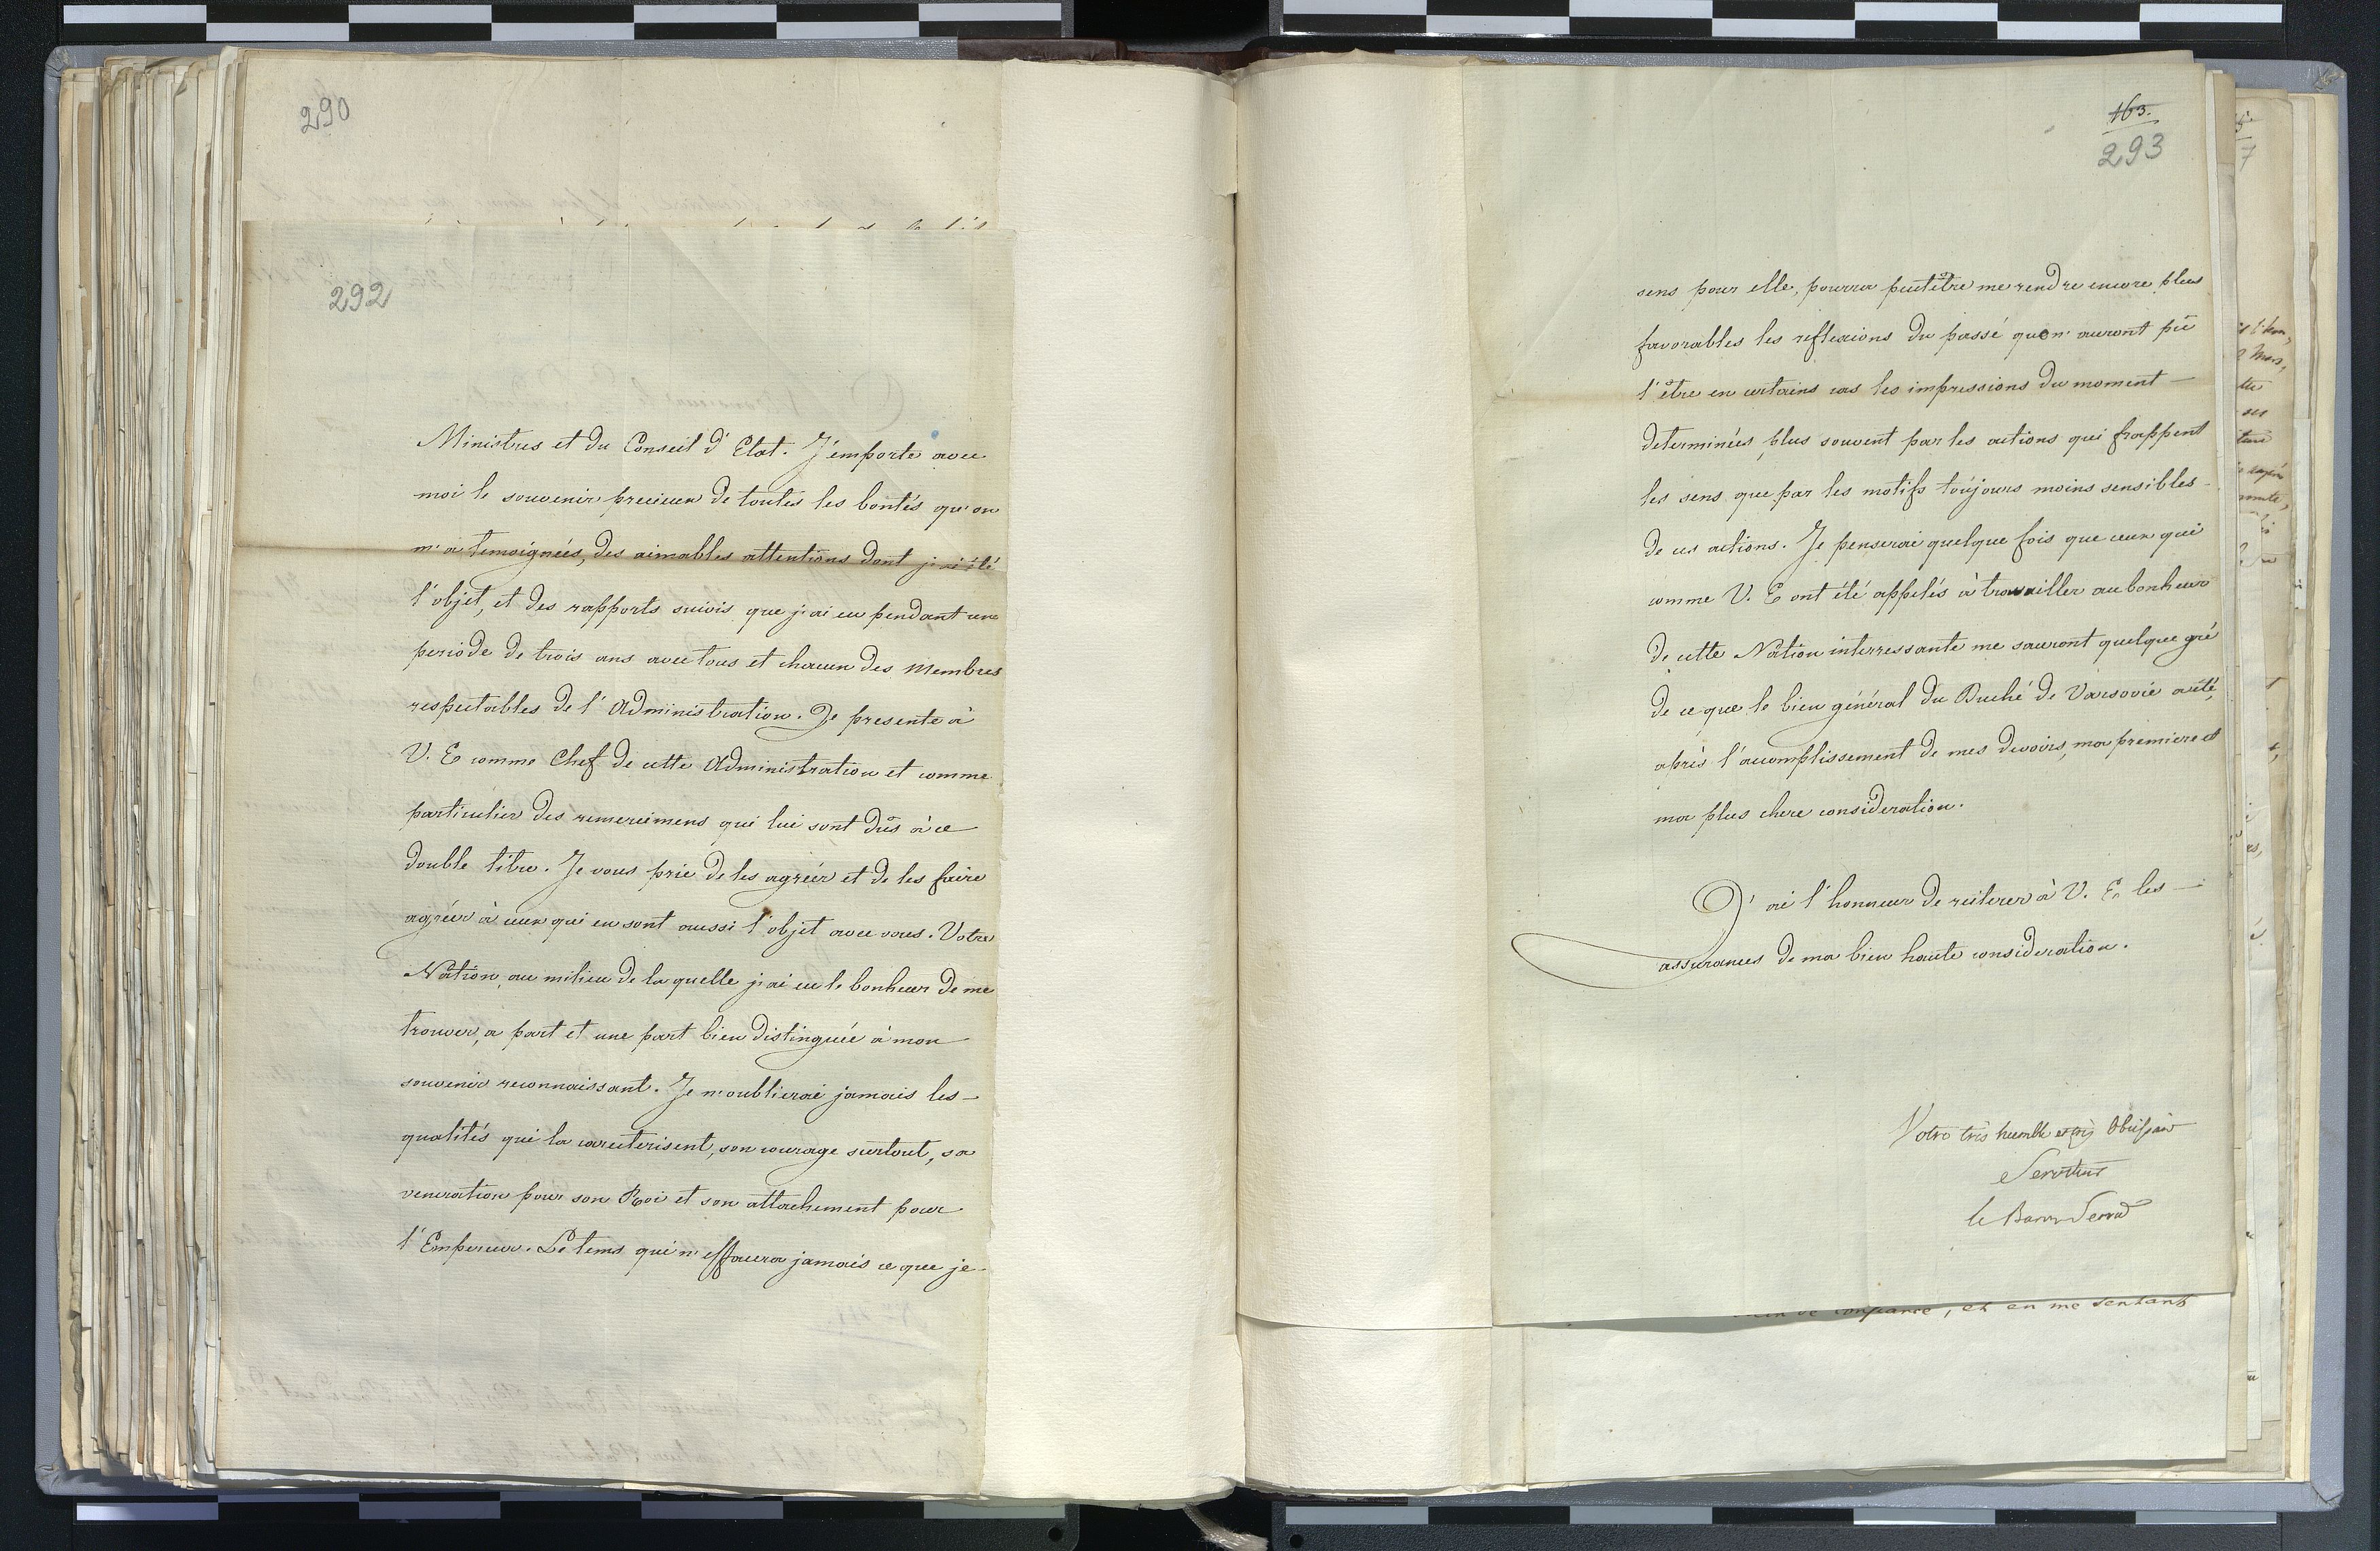 290
292
Ministres et du Conseil d'Etat. J'emporte avec
moi le souvenir precieux de toutes les bontés qu'on
m'a temoignées, des aimables attentions dont j'ai été
l'objet, et des rapports suivis que j'ai eu pendant une
periode de trois ans avec tous et chacun des Membres
respectables de l'Administration. Je presente à
V. E comme Chef de cette Administration et comme
particulier des remercimens qui lui sont dûs à ce
double titre. Je vous prie de les agréer et de les faire
agréer à ceux qui en sont aussi l'objet avec vous. Votre
Nation, au milieu de la quelle j'ai eu le bonheur de me
trouver, a part et une part bien distinguée à mon
souvenir reconnaissant. Je n'oublierai jamais les
qualités qui la caracterisent, son courage surtout, sa
veneration pour son Roi et son attachement pour
l'Empereur. Le tems qui n'effacera jamais ce que je
163.
293
sens pour elle, pourra peutêtre me rendre encore plus
favorables les reflexions du passé que n'auront pû
l'être en certains cas les impressions du moment —
determinées plus souvent par les actions qui frappent
les sens que par les motifs toujours moins sensibles
de ces actions. Je penserai quelque fois que ceux qui
comme V. E ont été appelés à travailler au bonheur
de cette Nation interressante me sauront quelque gré
de ce que le bien général du Duché de Varsovie a été,
après l'accomplissement de mes devoirs, ma premiere et
ma plus chere consideration.
J'ai l'honneur de reiterer à V. E les —
assurances de ma bien haute consideration.
Votre très humble et très Obeissant
Serviteur
le Baron Serra
de confiance, et en me sentant